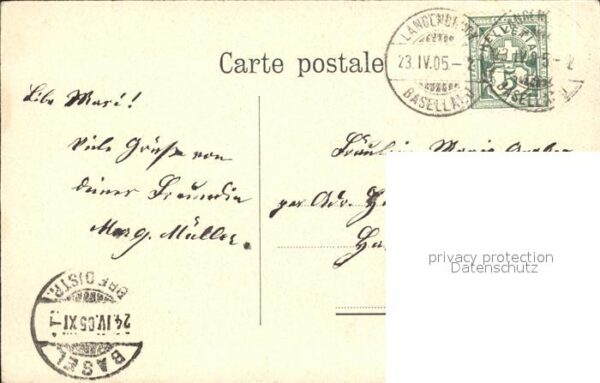 Carte postale
LANGENBRUCK
23.IV.05.-2
BASELLAND
HELVETIA
5
Libe Mari!
Viele Grüße von
deiner Freundin
Marg. Müller.
Fräulein Marie
per Adr.
privacy protection
Datenschutz
BASEL
24.IV.05.XI
BRF.DISTR.